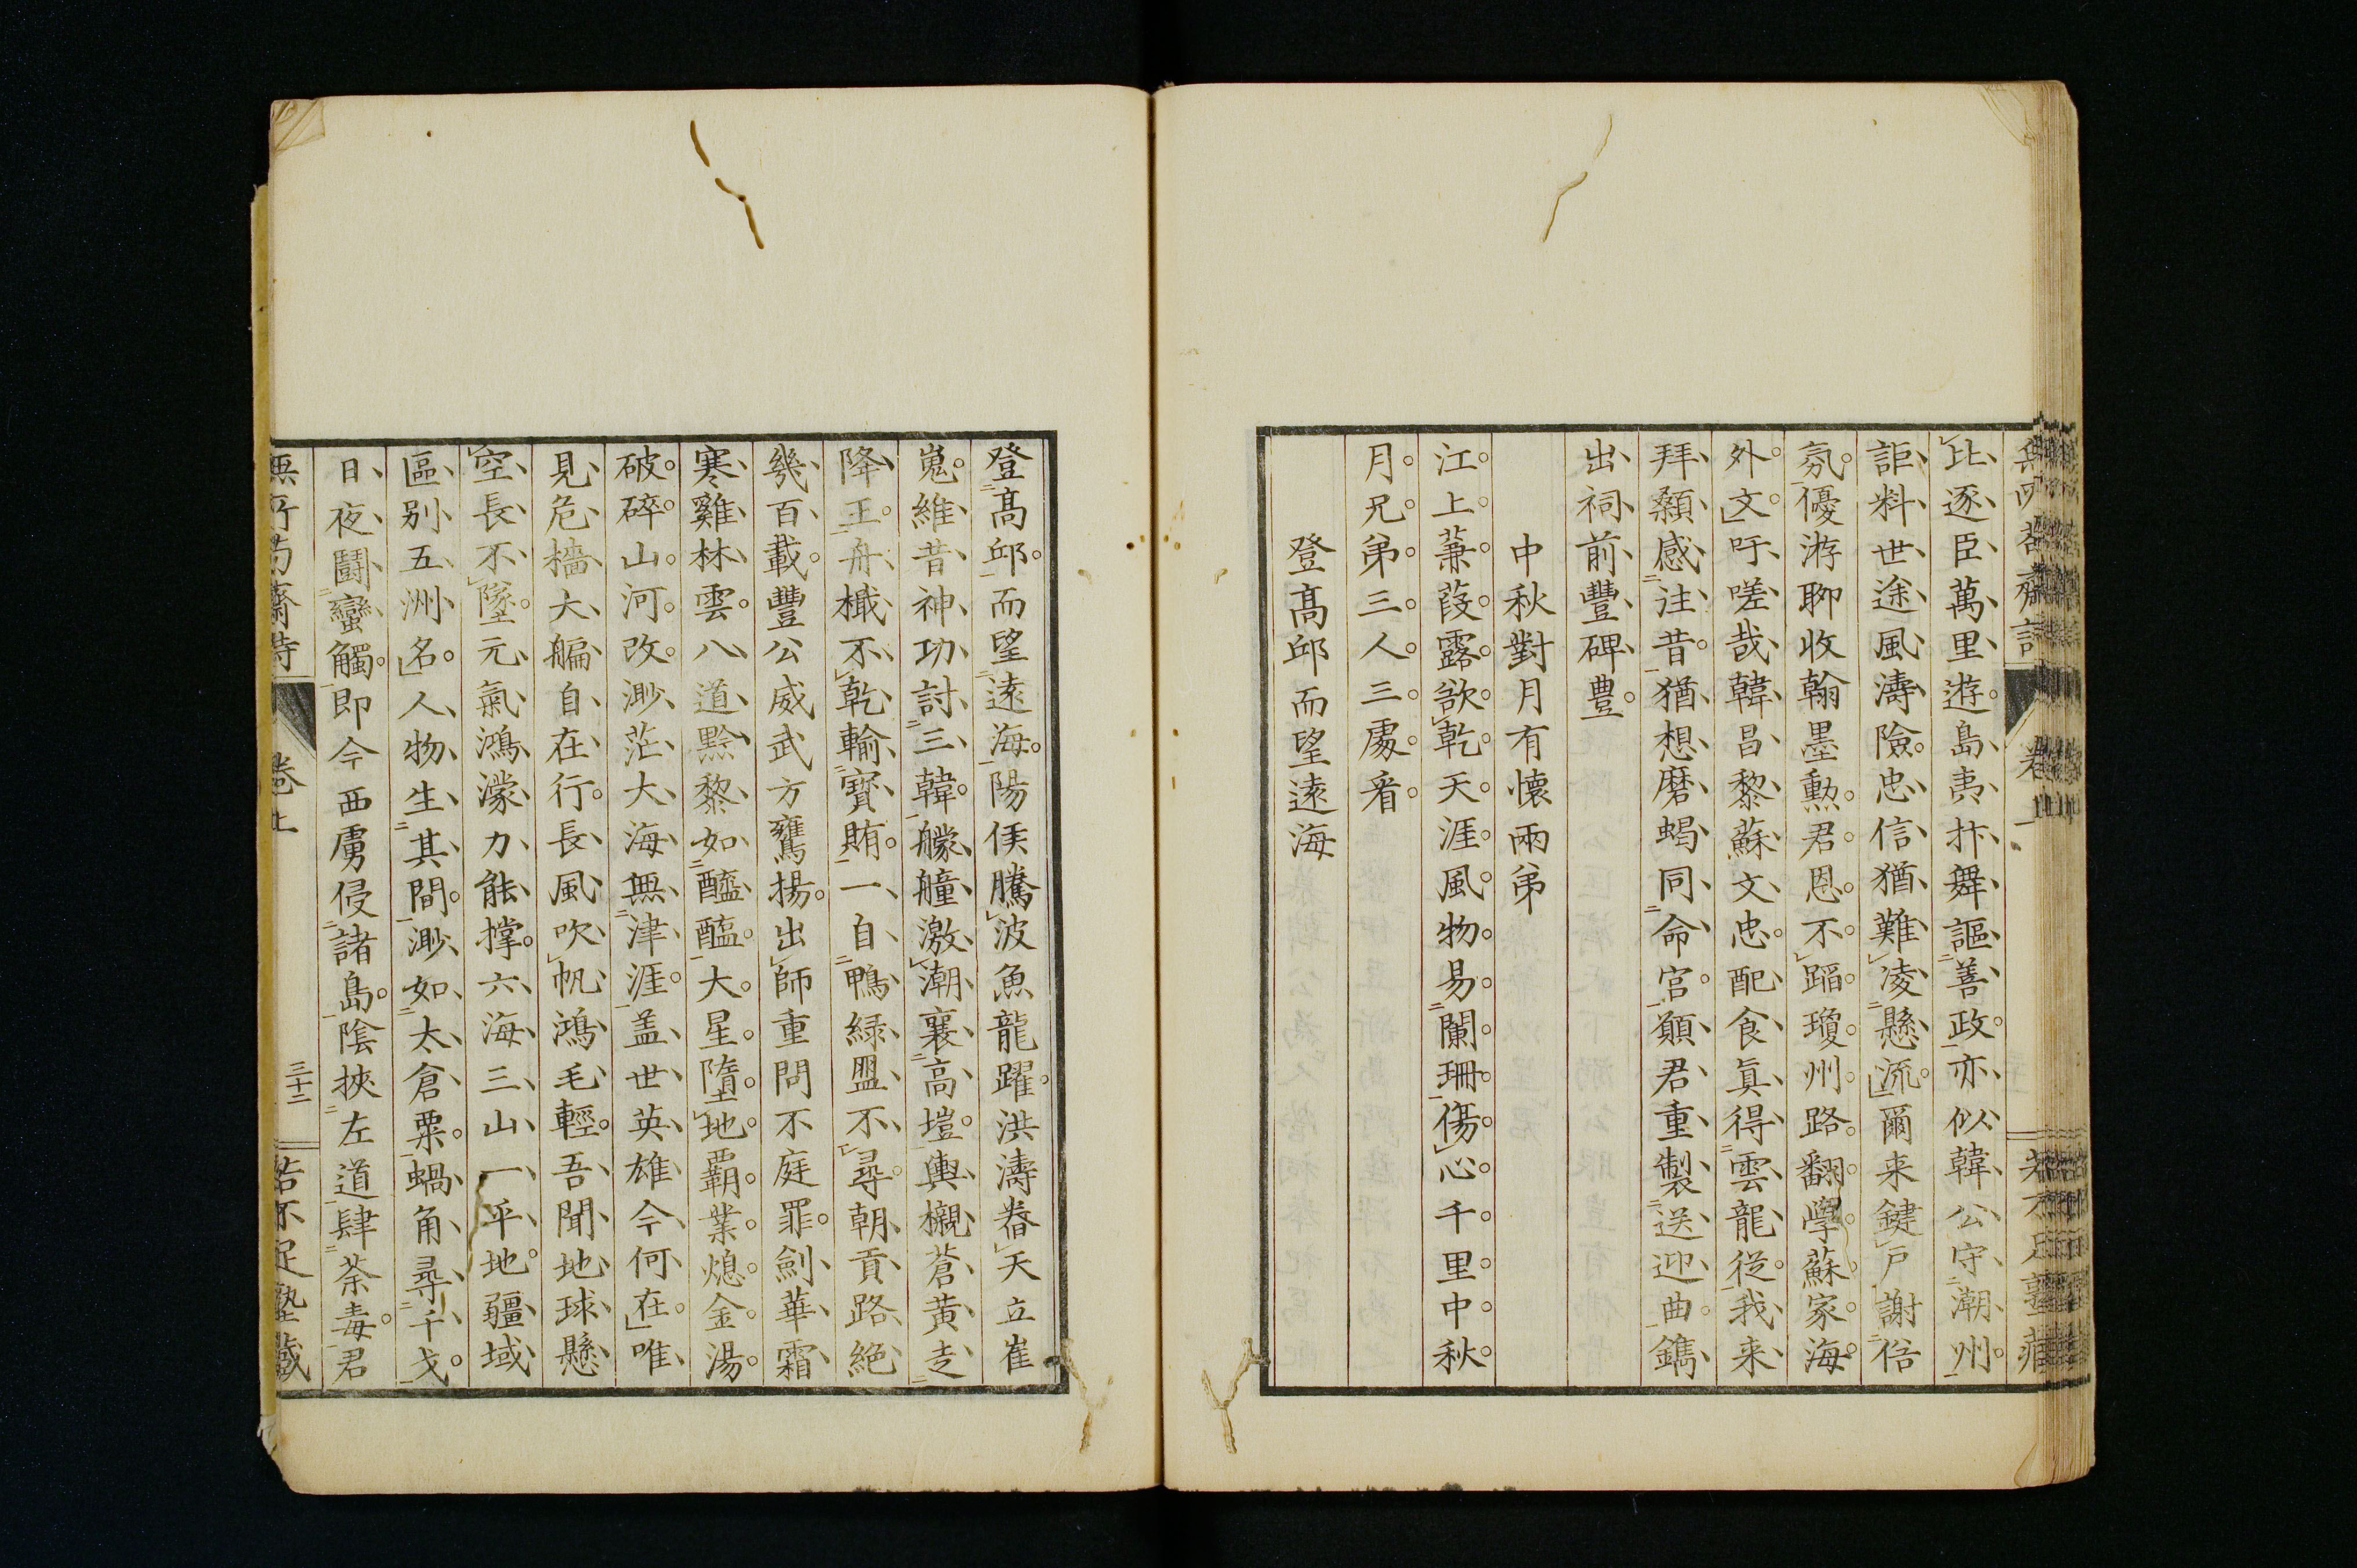 比逐臣萬里遊。島夷抃舞謳善政。亦似韓公守潮州。
詎料世途風濤險。忠信猶難凌懸流。爾来鍵戸謝俗
氛。優游聊收翰墨勲。君恩不蹈瓊州路。翻學蘇家海
外文。吁嗟哉韓昌黎蘇文忠。配食真得雲龍從。我来
拜顙感注昔。猶想磨蝎同命宮。願君重製送迎曲。鐫
出祠前豐碑豊。
中秋對月有懷兩弟
江上蒹葭露欲乾。天涯風物易闌珊。傷心千里中秋
月。兄弟三人三處看。
登髙邱而望遠海
登髙邱。而望遠海。陽侯騰波魚龍躍。洪濤眷天立崔
嵬。維昔神功討三韓。艨艟激潮襄高塏。輿櫬蒼黃走
降王。舟檝不乾輸寶賄。一自鴨緑盟不尋。朝貢路絶
幾百載。豐公威武方鷹揚。出師重問不庭罪。劍華霜
寒雞林雲。八道黔黎如醯醢。大星墮地覇業熄。金湯
破碎山河改。渺茫大海無津涯。盖世英雄今何在。唯
見危檣大艑自在行。長風吹帆鴻毛輕。吾聞地球懸
空長不墜。元氣鴻濛力能撑。六海三山一平地。疆域
區別五洲名。人物生其間。渺如太倉粟。蝸角尋干戈。
日夜鬪蠻觸。即今西虜侵諸島。陰挾左道肆荼毒。君
卷上
三十二